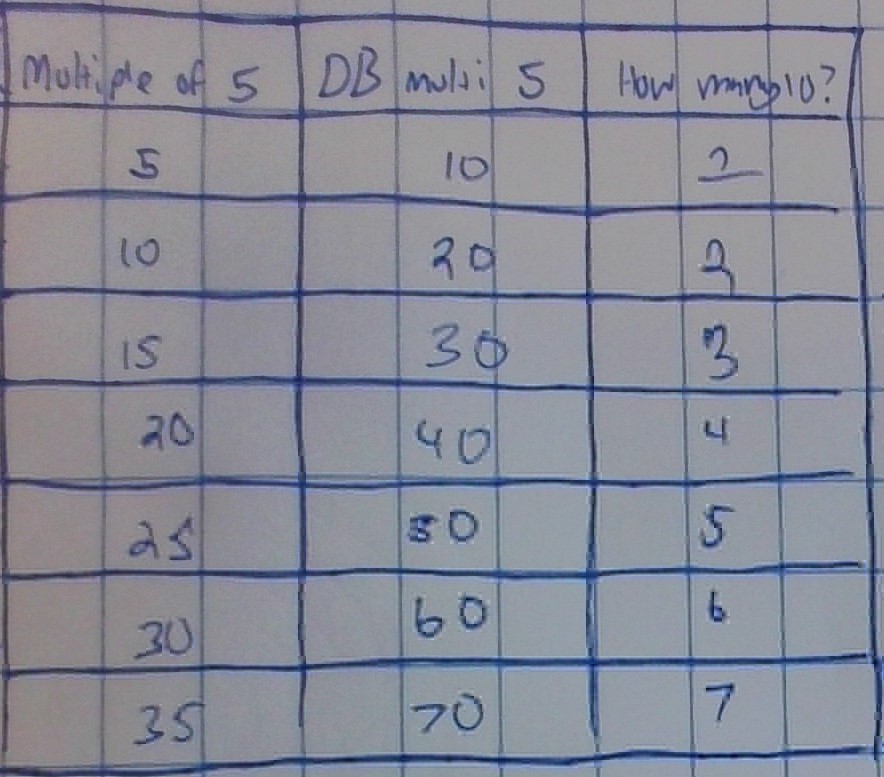 Multiple of 5 DB multi 5 How many 10?
5 10
10 20 2
15 30 3
20 40 4
25 50 5
30 60 6
35 70 7